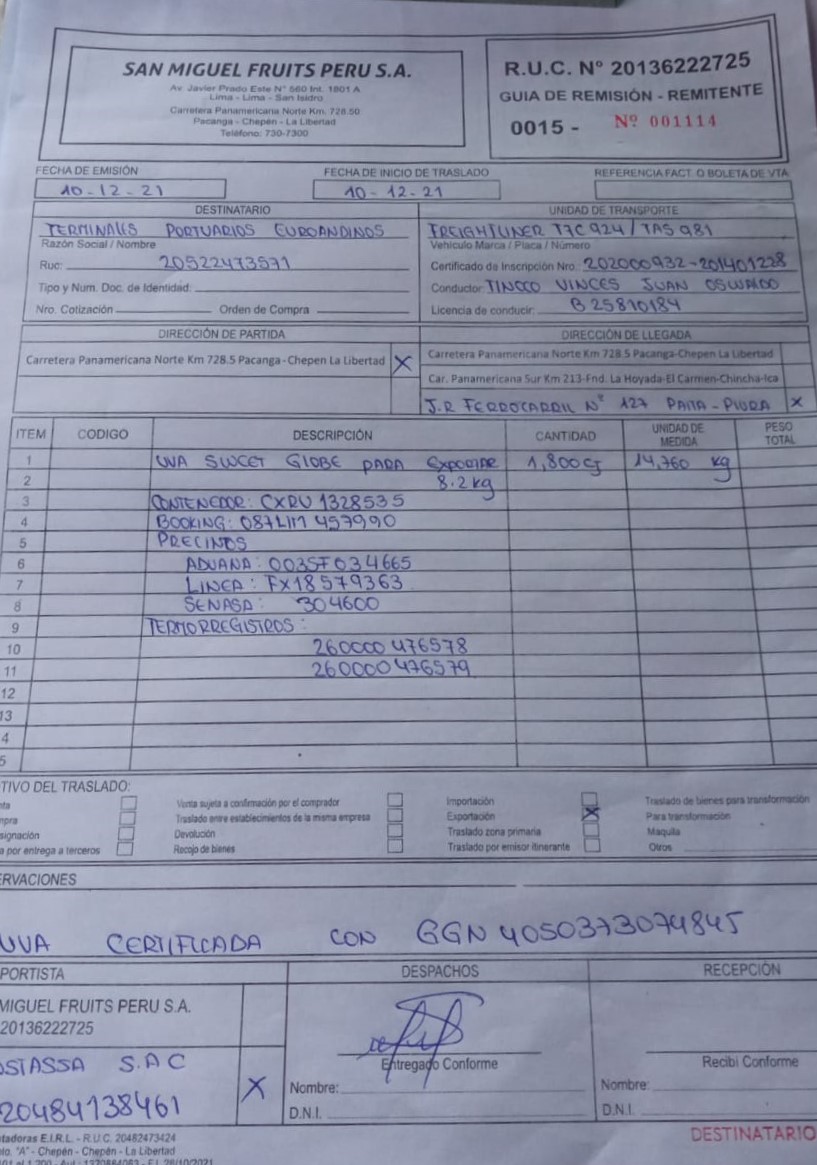 SAN MIGUEL FRUITS PERU S.A.
Av. Javier Prado Este N° 560 Int. 1601 A
Lima - Lima - San Isidro
Carretera Panamericana Norte Km. 728.50
Pacanga - Chepén - La Libertad
Teléfono: 730-7300
R.U.C. N° 20136222725
GUIA DE REMISIÓN - REMITENTE
0015 - Nº 001114
FECHA DE EMISIÓN
10-12-21
FECHA DE INICIO DE TRASLADO
10-12-21
REFERENCIA FACT. O BOLETA DE VTA
DESTINATARIO
TERMINALES PORTUARIOS EUROANDINOS
Razón Social / Nombre
Ruc: 20522473571
Tipo y Num. Doc. de Identidad:
Nro. Cotización Orden de Compra
UNIDAD DE TRANSPORTE
FREIGHTLINER T7C924 / TAS981
Vehículo Marca / Placa / Número
Certificado de Inscripción Nro. 202000932-201401228
Conductor TINOCO VINCES JUAN OSWALDO
Licencia de conducir: B25810184
DIRECCIÓN DE PARTIDA
Carretera Panamericana Norte Km 728.5 Pacanga-Chepen La Libertad X
DIRECCIÓN DE LLEGADA
Carretera Panamericana Norte Km 728.5 Pacanga-Chepen La Libertad
Car. Panamericana Sur Km 213-Fnd. La Hoyada-El Carmen-Chincha-Ica
J.R FERROCARRIL N° 127 PAITA-PIURA X
ITEM CODIGO DESCRIPCIÓN CANTIDAD UNIDAD DE MEDIDA PESO TOTAL
1 UVA SWEET GLOBE PARA EXPORTAR 1,800 CJ 14,760 kg
2 8.2 kg
3 CONTENEDOR: CXRU 1328535
4 BOOKING: 087LIM457990
5 PRECINOS
6 ADUANA: 0035F034665
7 LINEA: FX18579363
8 SENASA: 304600
9 TERMORREGISTROS:
10 260000476578
11 260000476579
12
13
4
5
TIVO DEL TRASLADO:
nta
mpra
signación
a por entrega a terceros
Venta sujeta a confirmación por el comprador
Traslado entre establecimientos de la misma empresa
Devolución
Recojo de bienes
Importación
Exportación X
Traslado zona primaria
Traslado por emisor itinerante
Traslado de bienes para transformación
Para transformación
Maquila
Otros
ERVACIONES
UVA CERTIFICADA CON GGN 4050373074845
PORTISTA
MIGUEL FRUITS PERU S.A.
20136222725
OSTASSA S.A.C
20484138461 X
DESPACHOS
Entregado Conforme
Nombre:
D.N.I.
RECEPCIÓN
Recibi Conforme
Nombre:
D.N.I.
tadoras E.I.R.L. - R.U.C. 20482473424
"A" - Chepén - Chepén - La Libertad
DESTINATARIO